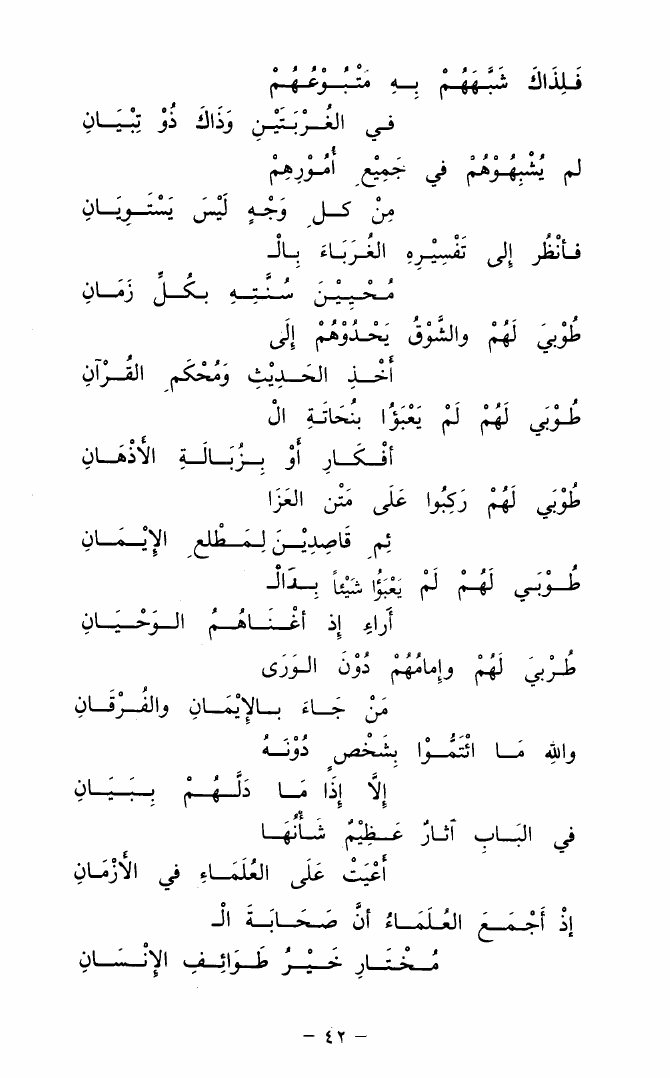 فَلِذَاكَ شَبَّهَهُمْ بِهِ مَتْبُوْعُهُمْ
في الغُرْبَتَيْنِ وَذَاكَ ذُو تِبْيَانِ
لم يُشْبِهُوْهُمْ في جَمِيْعِ أُمُوْرِهِمْ
مِنْ كلِ وَجْهٍ لَيْسَ يَسْتَوِيَانِ
فأنْظُر إلى تَفْسِيْرِهِ الغُرَبَاءَ بِالْـ
مُحْيِيْنَ سُنَّتِهِ بكُلِّ زَمَانِ
طُوْبىَ لَهُمْ والشَّوْقُ يَحْدُوْهُمْ إلَى
أخْذِ الحَدِيْثِ وَمُحْكَمِ القُرْآنِ
طُوْبَي لَهُمْ لَمْ يَعْبَؤُا بنُحَاتَةِ الْ
أفْكَارِ أوْ بِزُبَالَةِ الأَذْهَانِ
طُوْبَي لَهُمْ رَكِبُوا عَلَى مَتْنِ العَزَا
ئِمِ قَاصِدِيْنَ لِمَطْلعِ الإيْمَانِ
طُوْبَي لَهُمْ لَمْ يَعْبَؤُا شَيْئاً بِذَالْـ
أراءِ إذ أغْنَاهُمُ الوَحْيَانِ
طُرْبيَ لَهُمْ وإمامُهُمْ دُوْنَ الوَرَى
مَنْ جَاءَ بالإيْمَانِ والفُرْقَانِ
والله مَا ائْتَمُّوْا بِشَخْصٍ دُوْنَهُ
إلَّا إذَا مَا دَلَّهُمْ بِبَيَانِ
في البَابِ آثارٌ عَظِيْمٌ شَأْنُهَا
أَعْيَتْ عَلَى العُلَمَاءِ في الأَزْمَانِ
إذْ أَجْمَعَ العُلَمَاءُ أنَّ صَحَابَةَ الْـ
مُخْتَارِ خَيْرُ طَوَائِفِ الإنْسَانِ
– ٤٢ –